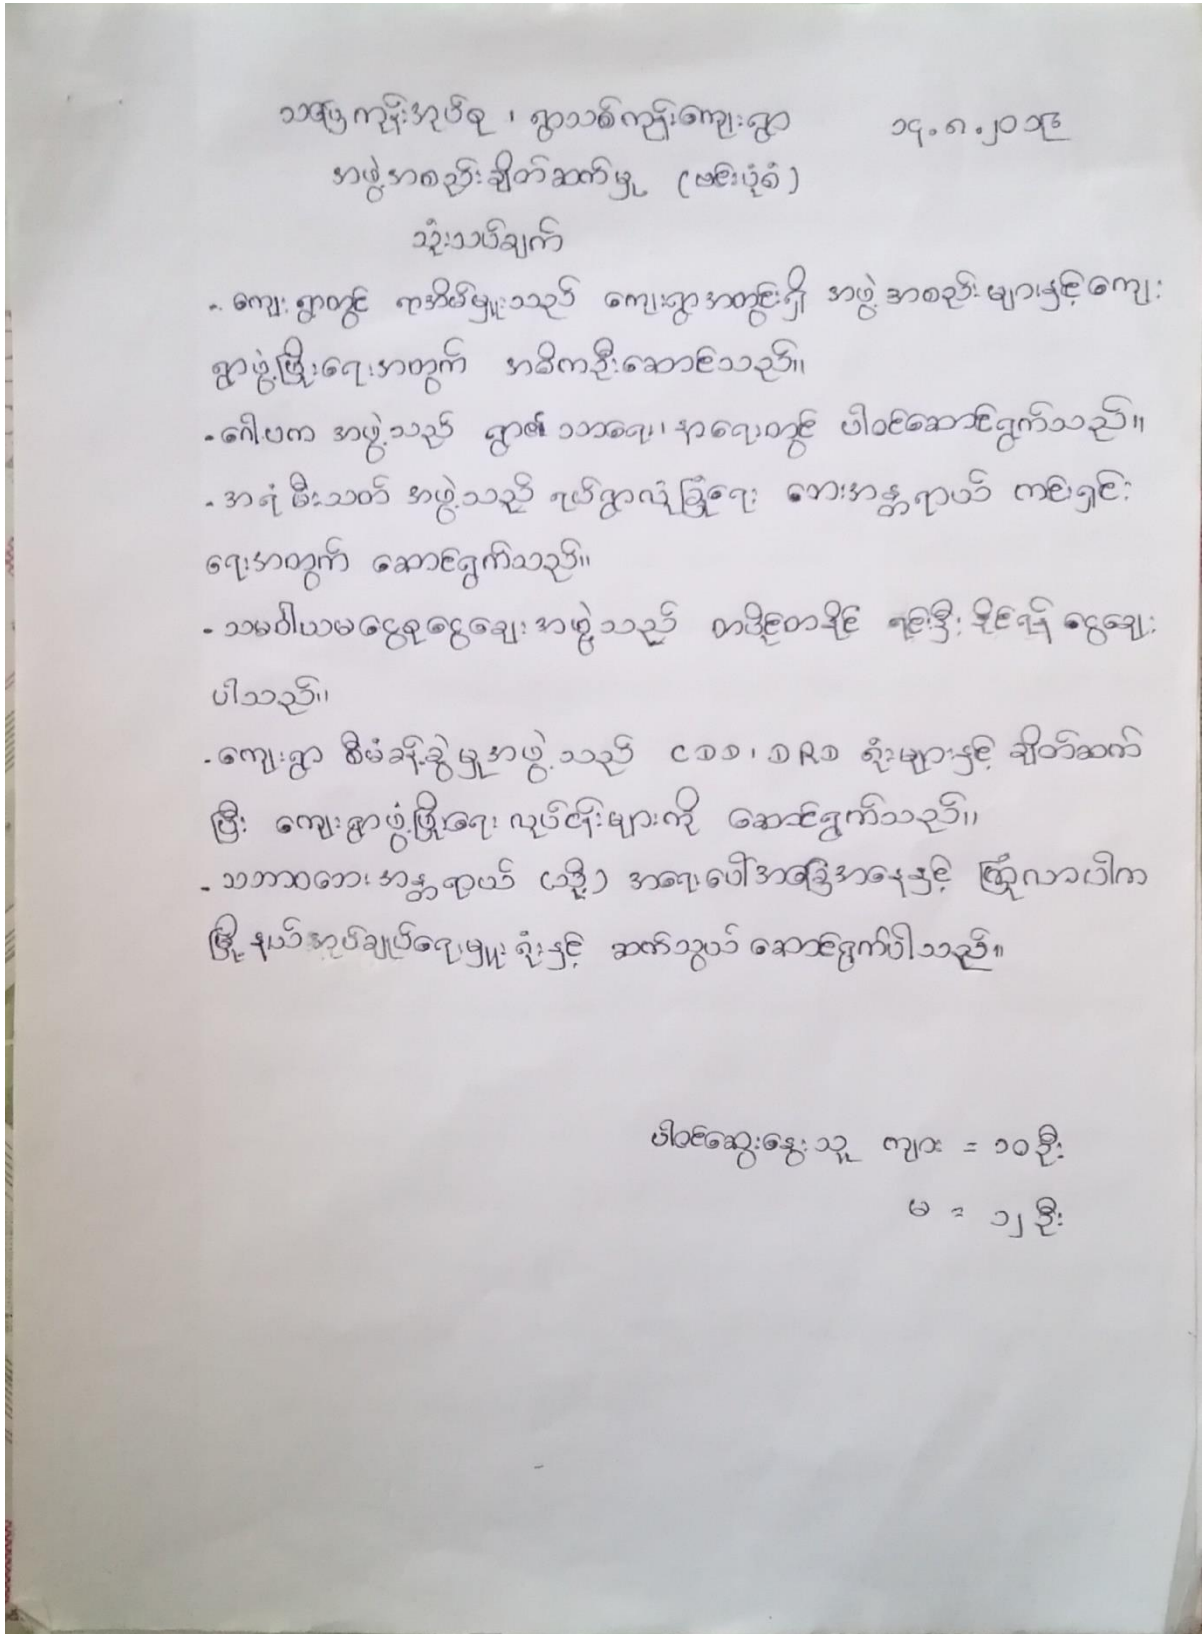 သပြေကုန်းအုပ်စု ၊ ရွာသစ်ကုန်းကျေးရွာ ၁၄.၈.၂၀၁၆
အဖွဲ့အစည်းချိတ်ဆက်မှု (ဗင်းပုံစံ)
သုံးသပ်ချက်
- ကျေးရွာတွင် ရာအိမ်မှူးသည် ကျေးရွာအတွင်းရှိ အဖွဲ့အစည်းများနှင့်ကျေး
ရွာဖွံ့ဖြိုးရေးအတွက် အဓိကဦးဆောင်သည်။
- ဂေါပက အဖွဲ့သည် ရွာ၏ သာရေး၊နာရေးတွင် ပါဝင်ဆောင်ရွက်သည်။
- အရံမီးသတ် အဖွဲ့သည် ရပ်ရွာလုံခြုံရေး ဘေးအန္တရာယ် ကင်းရှင်း
ရေးအတွက် ဆောင်ရွက်သည်။
- သမဝါယမငွေစုငွေချေးအဖွဲ့သည် တပိုင်တနိုင် ရင်းနှီး နိုင်ရန် ငွေချေး
ပါသည်။
- ကျေးရွာ စီမံခန့်ခွဲမှုအဖွဲ့သည် CDD ၊ DRD ရုံးများနှင့် ချိတ်ဆက်
ပြီး ကျေးရွာဖွံ့ဖြိုးရေး လုပ်ငန်းများကို ဆောင်ရွက်သည်။
- သဘာဝဘေးအန္တရာယ် (သို့) အရေးပေါ်အခြေအနေနှင့် ကြုံလာပါက
မြို့နယ်အုပ်ချုပ်ရေးမှူးရုံးနှင့် ဆက်သွယ် ဆောင်ရွက်ပါသည်။
ပါဝင်ဆွေးနွေးသူ ကျား = ၁၀ ဦး
မ = ၁၂ ဦး